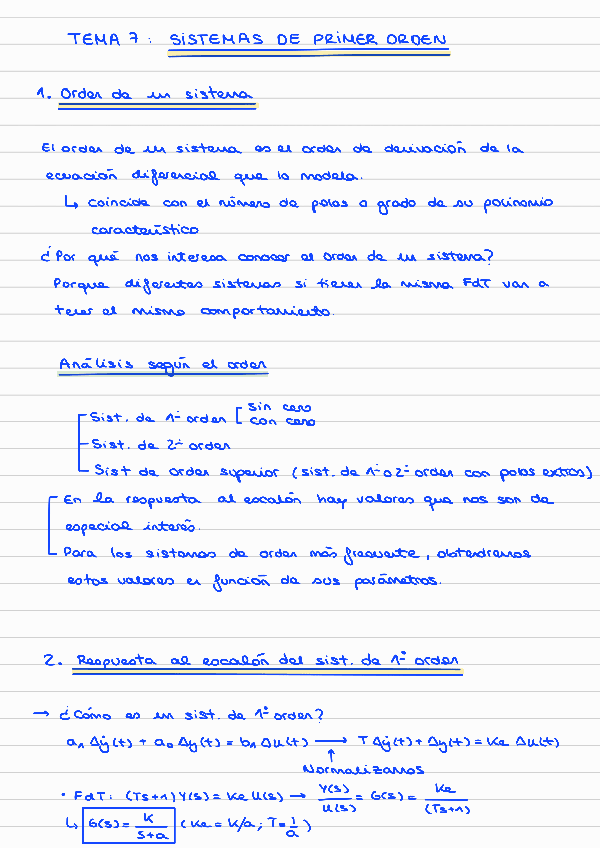 TEMA 7: SISTEMAS DE PRIMER ORDEN
1. Orden de un sistema
El orden de un sistema es el orden de derivación de la
ecuación diferencial que lo modela.
↳ Coincide con el número de polos o grado de su polinomio
característico
¿Por qué nos interesa conocer el orden de un sistema?
Porque diferentes sistemas si tienen la misma FdT van a
tener el mismo comportamiento.
Análisis según el orden
Sist. de 1º orden [ sin cero
con cero
Sist. de 2º orden
Sist de orden superior (sist. de 1º o 2º orden con polos extras)
En la respuesta al escalón hay valores que nos son de
especial interés.
Para los sistemas de orden más frecuente, obtendremos
estos valores en función de sus parámetros.
2. Respuesta al escalón del sist. de 1º orden
→ ¿Cómo es un sist. de 1º orden?
a₁ Δẏ(t) + a₀ Δy(t) = b₁ Δu(t) → T Δẏ(t) + Δy(t) = Ke Δu(t)
↑
Normalizamos
· FdT: (Ts+1) Y(s) = Ke U(s) → Y(s)/U(s) = G(s) = Ke/(Ts+1)
↳ G(s) = K/(s+a) (Ke = K/a; T = 1/a)